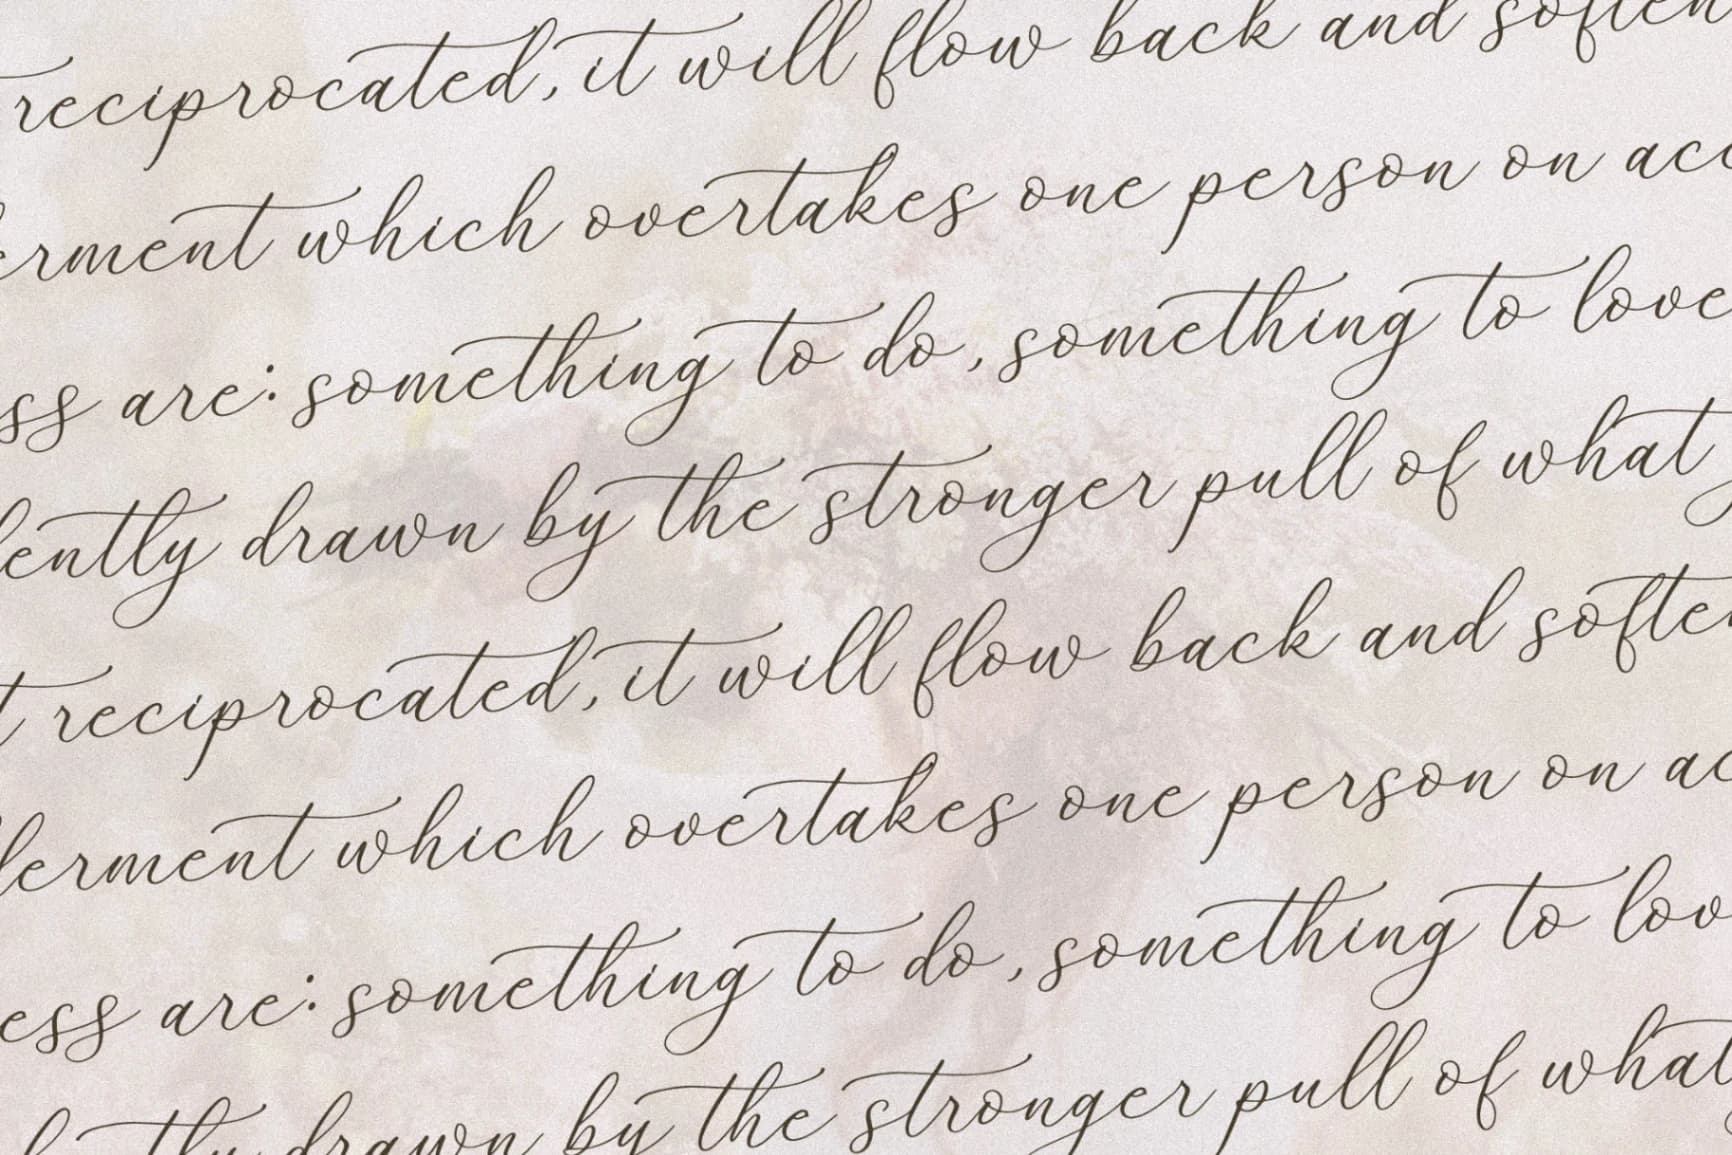 reciprocated, it will flow back and soften
erment which overtakes one person on acc
ss are: something to do, something to love
lently drawn by the stronger pull of what
t reciprocated, it will flow back and soften
lerment which overtakes one person on ac
ess are: something to do, something to lov
ly drawn by the stronger pull of what